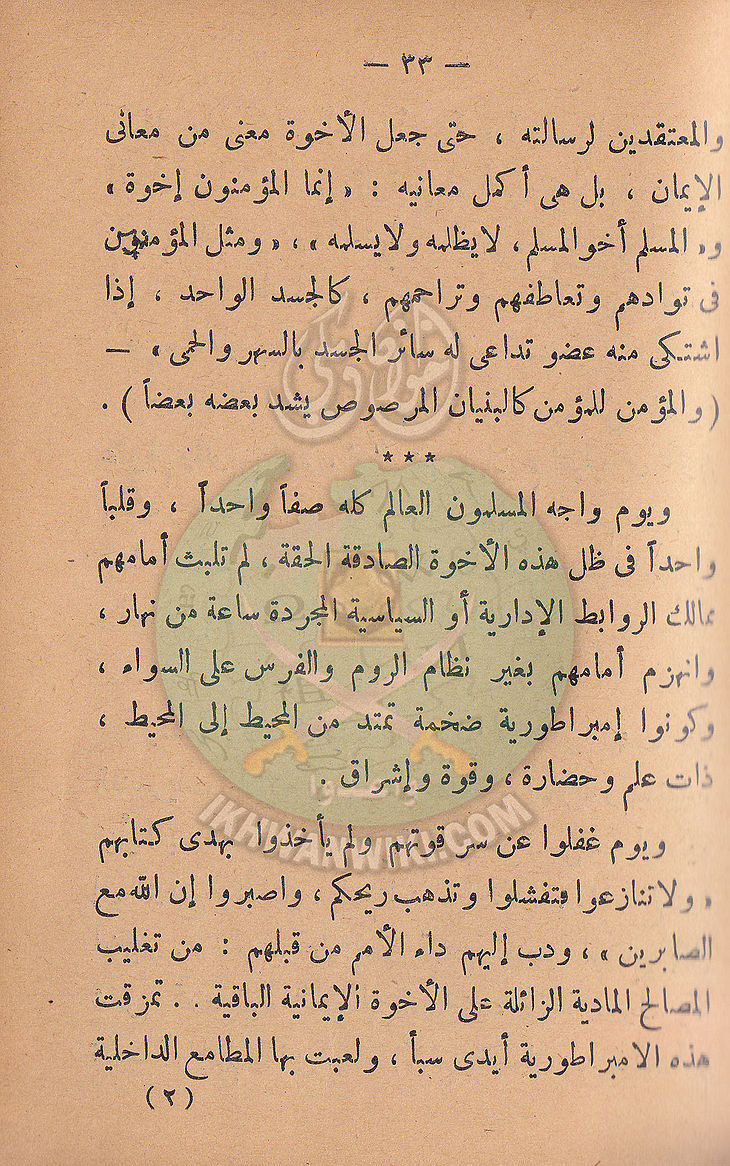 — ٣٣ —
والمعتقدين لرسالته ، حتى جعل الأخوة معنى من معانى
الإيمان ، بل هى أكمل معانيه : « إنما المؤمنون إخوة »
و« المسلم أخو المسلم ، لا يظلمه ولا يسلمه » ، « ومثل المؤمنين
فى توادهم وتعاطفهم وتراحمهم ، كالجسد الواحد ، إذا
اشتكى منه عضو تداعى له سائر الجسد بالسهر والحمى » —
( والمؤمن للمؤمن كالبنيان المرصوص يشد بعضه بعضاً ) .
* * *
ويوم واجه المسلمون العالم كله صفاً واحداً ، وقلباً
واحداً فى ظل هذه الأخوة الصادقة الحقة ، لم تلبث أمامهم
ممالك الروابط الإدارية أو السياسية المجردة ساعة من نهار ،
وانهزم أمامهم بغير نظام الروم والفرس على السواء ،
وكونوا إمبراطورية ضخمة تمتد من المحيط إلى المحيط ،
ذات علم وحضارة ، وقوة وإشراق .
ويوم غفلوا عن سر قوتهم ولم يأخذوا بهدى كتابهم
« ولا تنازعوا فتفشلوا وتذهب ريحكم ، واصبروا إن الله مع
الصابرين » ، ودب إليهم داء الأمم من قبلهم : من تغليب
المصالح المادية الزائلة على الأخوة الإيمانية الباقية . . تمزقت
هذه الامبراطورية أيدى سبأ ، ولعبت بها المطامع الداخلية
( ٢ )
إخوان ويكي
وأعدوا
IKHWANWIKI.COM